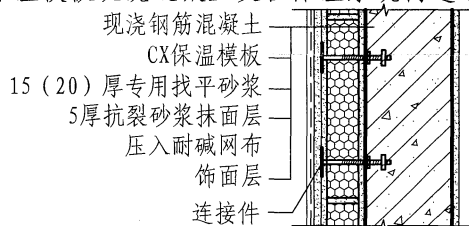 现浇钢筋混凝土
CX保温模板
15（20）厚专用找平砂浆
5厚抗裂砂浆抹面层
压入耐碱网布
饰面层
连接件